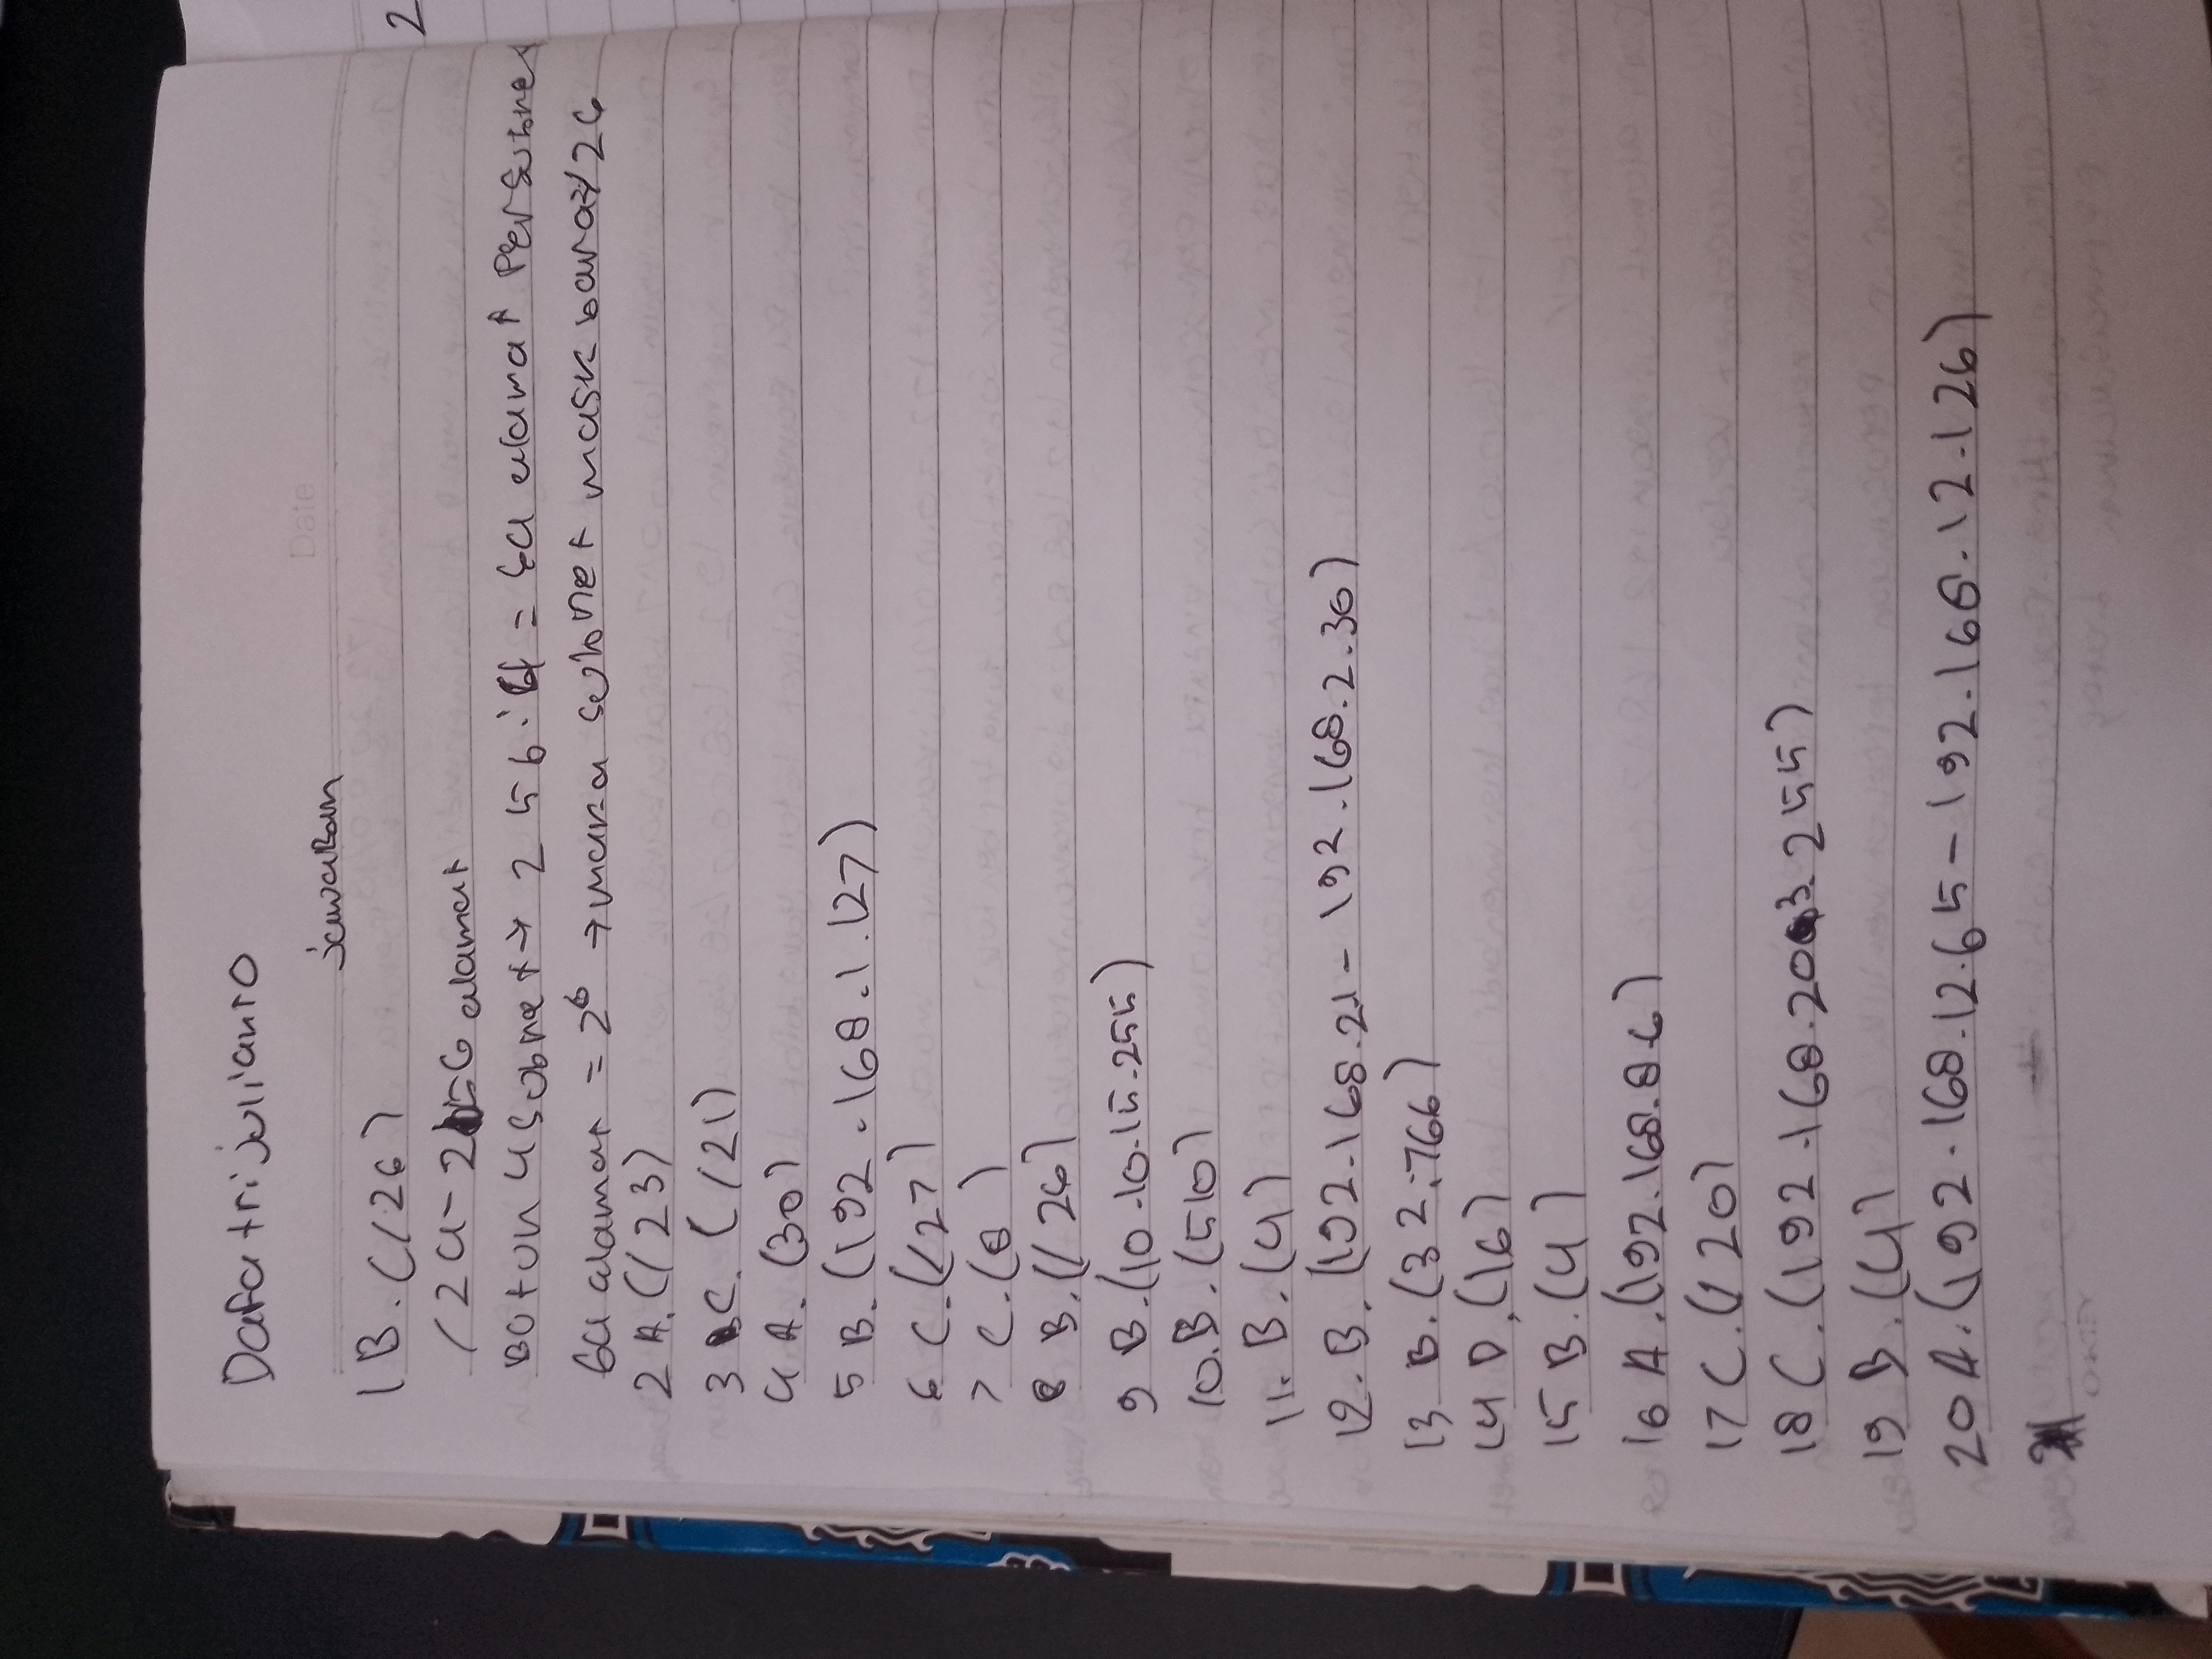 Date
Dafa tri julianto
jawaban
1 B. (/26)
/24 - 256 alamat
Botuh 4 subnet → 256 : 4 = 64 alamat per subnet
64 alamat = 2⁶ → maka subnet mask baru = /26
2 A. (/23)
3 C. (/21)
4 A. (30)
5 B. (192.168.1.127)
6 C. (/27)
7 C. (8)
8 B. (/26)
9 B. (10.10.15.255)
10. B. (510)
11. B. (4)
12. B. (192.168.21 - 192.168.2.30)
13 B. (32.766)
14 D. (16)
15 B. (4)
16 A. (192.168.8.6)
17 C. (/20)
18 C. (192.168.203.255)
19 B. (4)
20 A. (192.168.12.65 - 192.168.12.126)
2